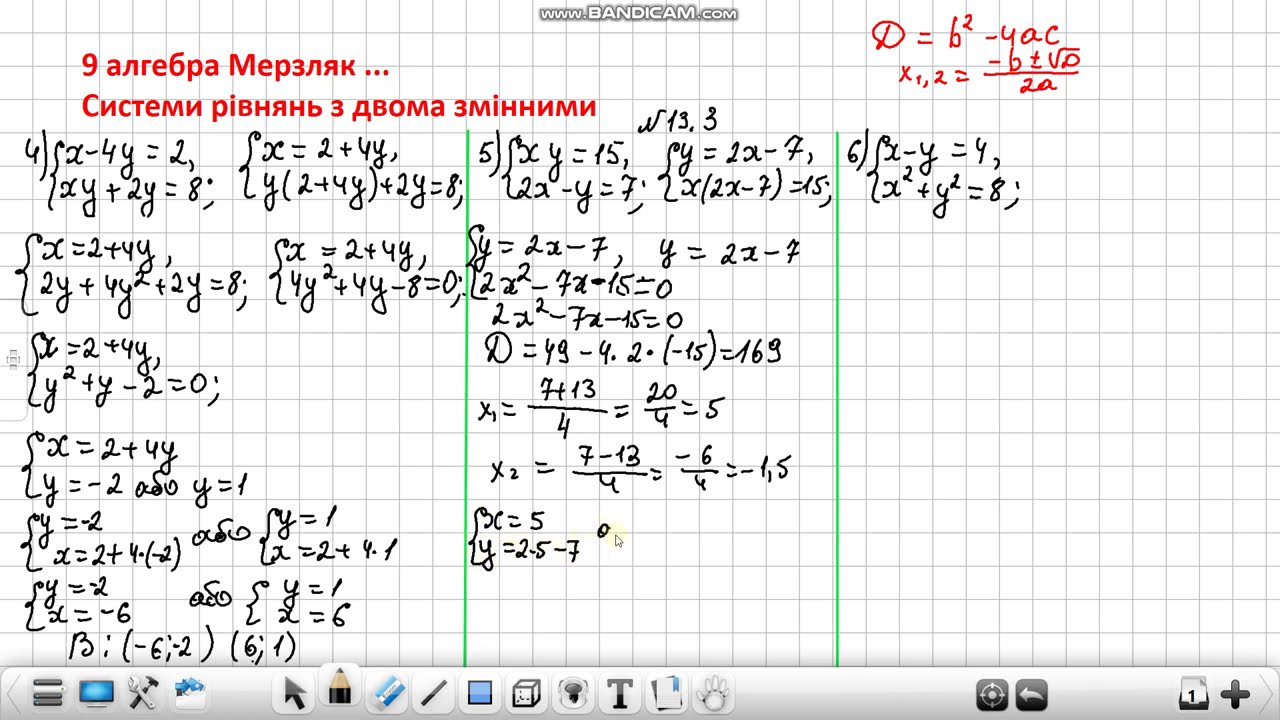 www.BANDICAM.com
9 алгебра Мерзляк ...
Системи рівнянь з двома змінними
D = b² - 4ac
x₁,₂ = (-b ± √D)/2a
№ 13.3
4) { x - 4y = 2,
xy + 2y = 8;
{ x = 2 + 4y,
y(2 + 4y) + 2y = 8;
{ x = 2 + 4y,
2y + 4y² + 2y = 8;
{ x = 2 + 4y,
4y² + 4y - 8 = 0;
{ x = 2 + 4y,
y² + y - 2 = 0;
{ x = 2 + 4y
y = -2 або y = 1
{ y = -2
x = 2 + 4·(-2)
або
{ y = 1
x = 2 + 4·1
{ y = -2
x = -6
або
{ y = 1
x = 6
В: (-6; -2) (6; 1)
5) { xy = 15,
2x - y = 7;
{ y = 2x - 7,
x(2x - 7) = 15;
{ y = 2x - 7,
2x² - 7x - 15 = 0
y = 2x - 7
2x² - 7x - 15 = 0
D = 49 - 4·2·(-15) = 169
x₁ = (7+13)/4 = 20/4 = 5
x₂ = (7-13)/4 = -6/4 = -1,5
{ x = 5
y = 2·5 - 7
6) { x - y = 4,
x² + y² = 8;
1